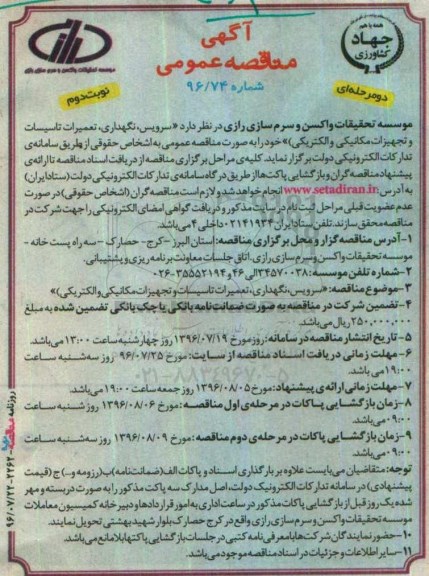 همه با هم
جهاد
کشاورزی
آگهی
مناقصه عمومی
شماره ۹۶/۷۴
موسسه تحقیقات واکسن و سرم سازی رازی
دو مرحله‌ای
نوبت دوم
موسسه تحقیقات واکسن و سرم سازی رازی در نظر دارد «سرویس، نگهداری، تعمیرات تاسیسات
و تجهیزات مکانیکی و الکتریکی» خود را به صورت مناقصه عمومی به اشخاص حقوقی از طریق سامانه‌ی
تدارکات الکترونیکی دولت برگزار نماید. کلیه‌ی مراحل برگزاری مناقصه از دریافت اسناد مناقصه تا ارائه‌ی
پیشنهاد مناقصه گران و بازگشایی پاکت‌ها از طریق درگاه سامانه‌ی تدارکات الکترونیکی دولت (ستاد ایران)
به آدرس www.setadiran.ir انجام خواهد شد و لازم است مناقصه گران (اشخاص حقوقی) در صورت
عدم عضویت قبلی مراحل ثبت نام در سایت مذکور و دریافت گواهی امضای الکترونیکی را جهت شرکت در
مناقصه محقق سازند. تلفن ستاد ایران ۰۲۱۴۱۹۳۴ داخلی ۴ می‌باشد.
۱- آدرس مناقصه گزار و محل برگزاری مناقصه: استان البرز - کرج - حصارک - سه راه پست خانه -
موسسه تحقیقات واکسن و سرم سازی رازی. اتاق جلسات معاونت برنامه ریزی و پشتیبانی.
۲- شماره تلفن موسسه: ۳۴۵۷۰۰۳۸ الی ۴۶ و ۳۵۵۵۲۱۹۴-۰۲۶
۳- موضوع مناقصه: «سرویس، نگهداری، تعمیرات تاسیسات و تجهیزات مکانیکی و الکتریکی»
۴- تضمین شرکت در مناقصه به صورت ضمانت نامه بانکی یا چک بانکی تضمین شده به مبلغ
۲۵۰,۰۰۰,۰۰۰ ریال می‌باشد.
۵- تاریخ انتشار مناقصه در سامانه: روز مورخ ۱۳۹۶/۰۷/۱۹ روز چهارشنبه ساعت ۱۳:۰۰ می‌باشد.
۶- مهلت زمانی دریافت اسناد مناقصه از سایت: مورخ ۹۶/۰۷/۲۵ روز سه‌شنبه ساعت
۱۹:۰۰ می باشد.
۷- مهلت زمانی ارائه‌ی پیشنهاد: مورخ ۱۳۹۶/۰۸/۰۵ روز جمعه ساعت ۱۹:۰۰ می‌باشد.
۸- زمان بازگشایی پاکات در مرحله‌ی اول مناقصه: مورخ ۱۳۹۶/۰۸/۰۶ روز شنبه ساعت
۰۹:۰۰ می‌باشد.
۹- زمان بازگشایی پاکات در مرحله‌ی دوم مناقصه: مورخ ۱۳۹۶/۰۸/۰۹ روز سه‌شنبه ساعت
۰۹:۰۰ می‌باشد.
توجه: متقاضیان می‌بایست علاوه بر بارگذاری اسناد و پاکات الف (ضمانت‌نامه) ب (رزومه و ...) ج (قیمت
پیشنهادی) در سامانه تدارکات الکترونیک دولت، اصل مدارک سه پاکت مذکور را به صورت دربسته و مهر
شده یک روز قبل از بازگشایی پاکات مذکور در ساعت اداری به امور قراردادها و دبیرخانه کمیسیون معاملات
موسسه تحقیقات واکسن و سرم سازی رازی واقع در کرج حصارک بلوار شهید بهشتی تحویل نمایند.
۱۰- حضور نمایندگان شرکت‌ها با معرفی نامه کتبی در جلسات بازگشایی پاکت‌ها بلامانع می‌باشد.
۱۱- سایر اطلاعات و جزئیات در اسناد مناقصه موجود می‌باشد.
روزنامه مناقصه ۲۲۶۲ - ۹۶/۰۷/۲۲
۰۲۱-۸۸۳۴۹۶۷۰-۵